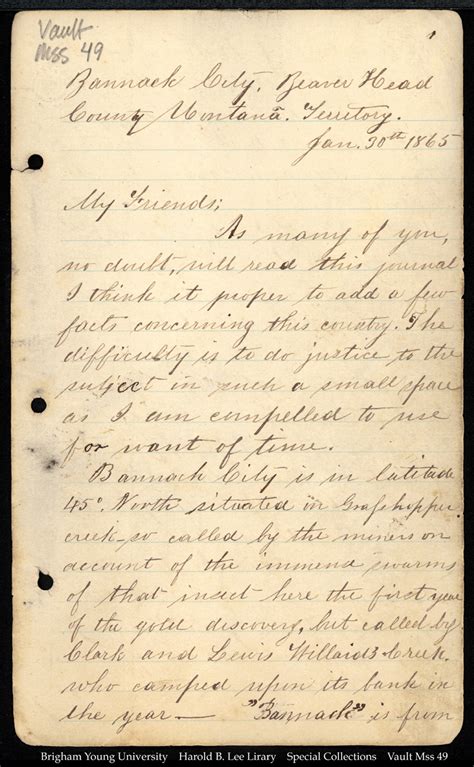 Vault
Mss 49
1
Bannack City, Beaver Head
County Montana. Territory.
Jan. 30th 1865
My Friends;
As many of you,
no doubt, will read this journal
I think it proper to add a few
facts concerning this country. The
difficulty is to do justice to the
subject in such a small space
as I am compelled to use
for want of time.
Bannack City is in latitude
45°. North situated in Grasshopper
creek - so called by the miners on
account of the immens swarms
of that insect here the first year
of the gold discovery, but called by
Clark and Lewis Creek.
who camped upon its bank in
the year — "Bannack" is from
Brigham Young University Harold B. Lee Lirary Special Collections Vault Mss 49